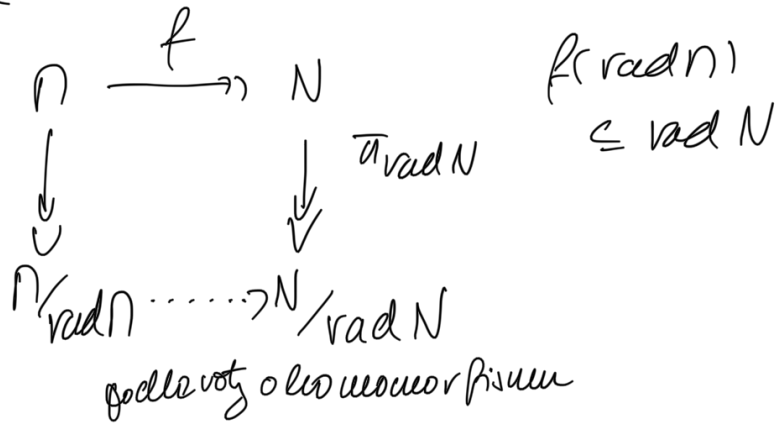 f
M ↠ N f(rad M)
π_{rad N} ⊆ rad N
M/rad M ......> N/rad N
podle věty o homomorfismu